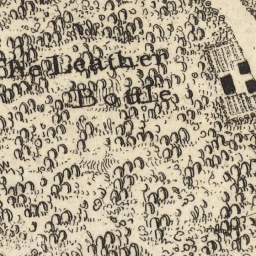 The Leather
Bottle